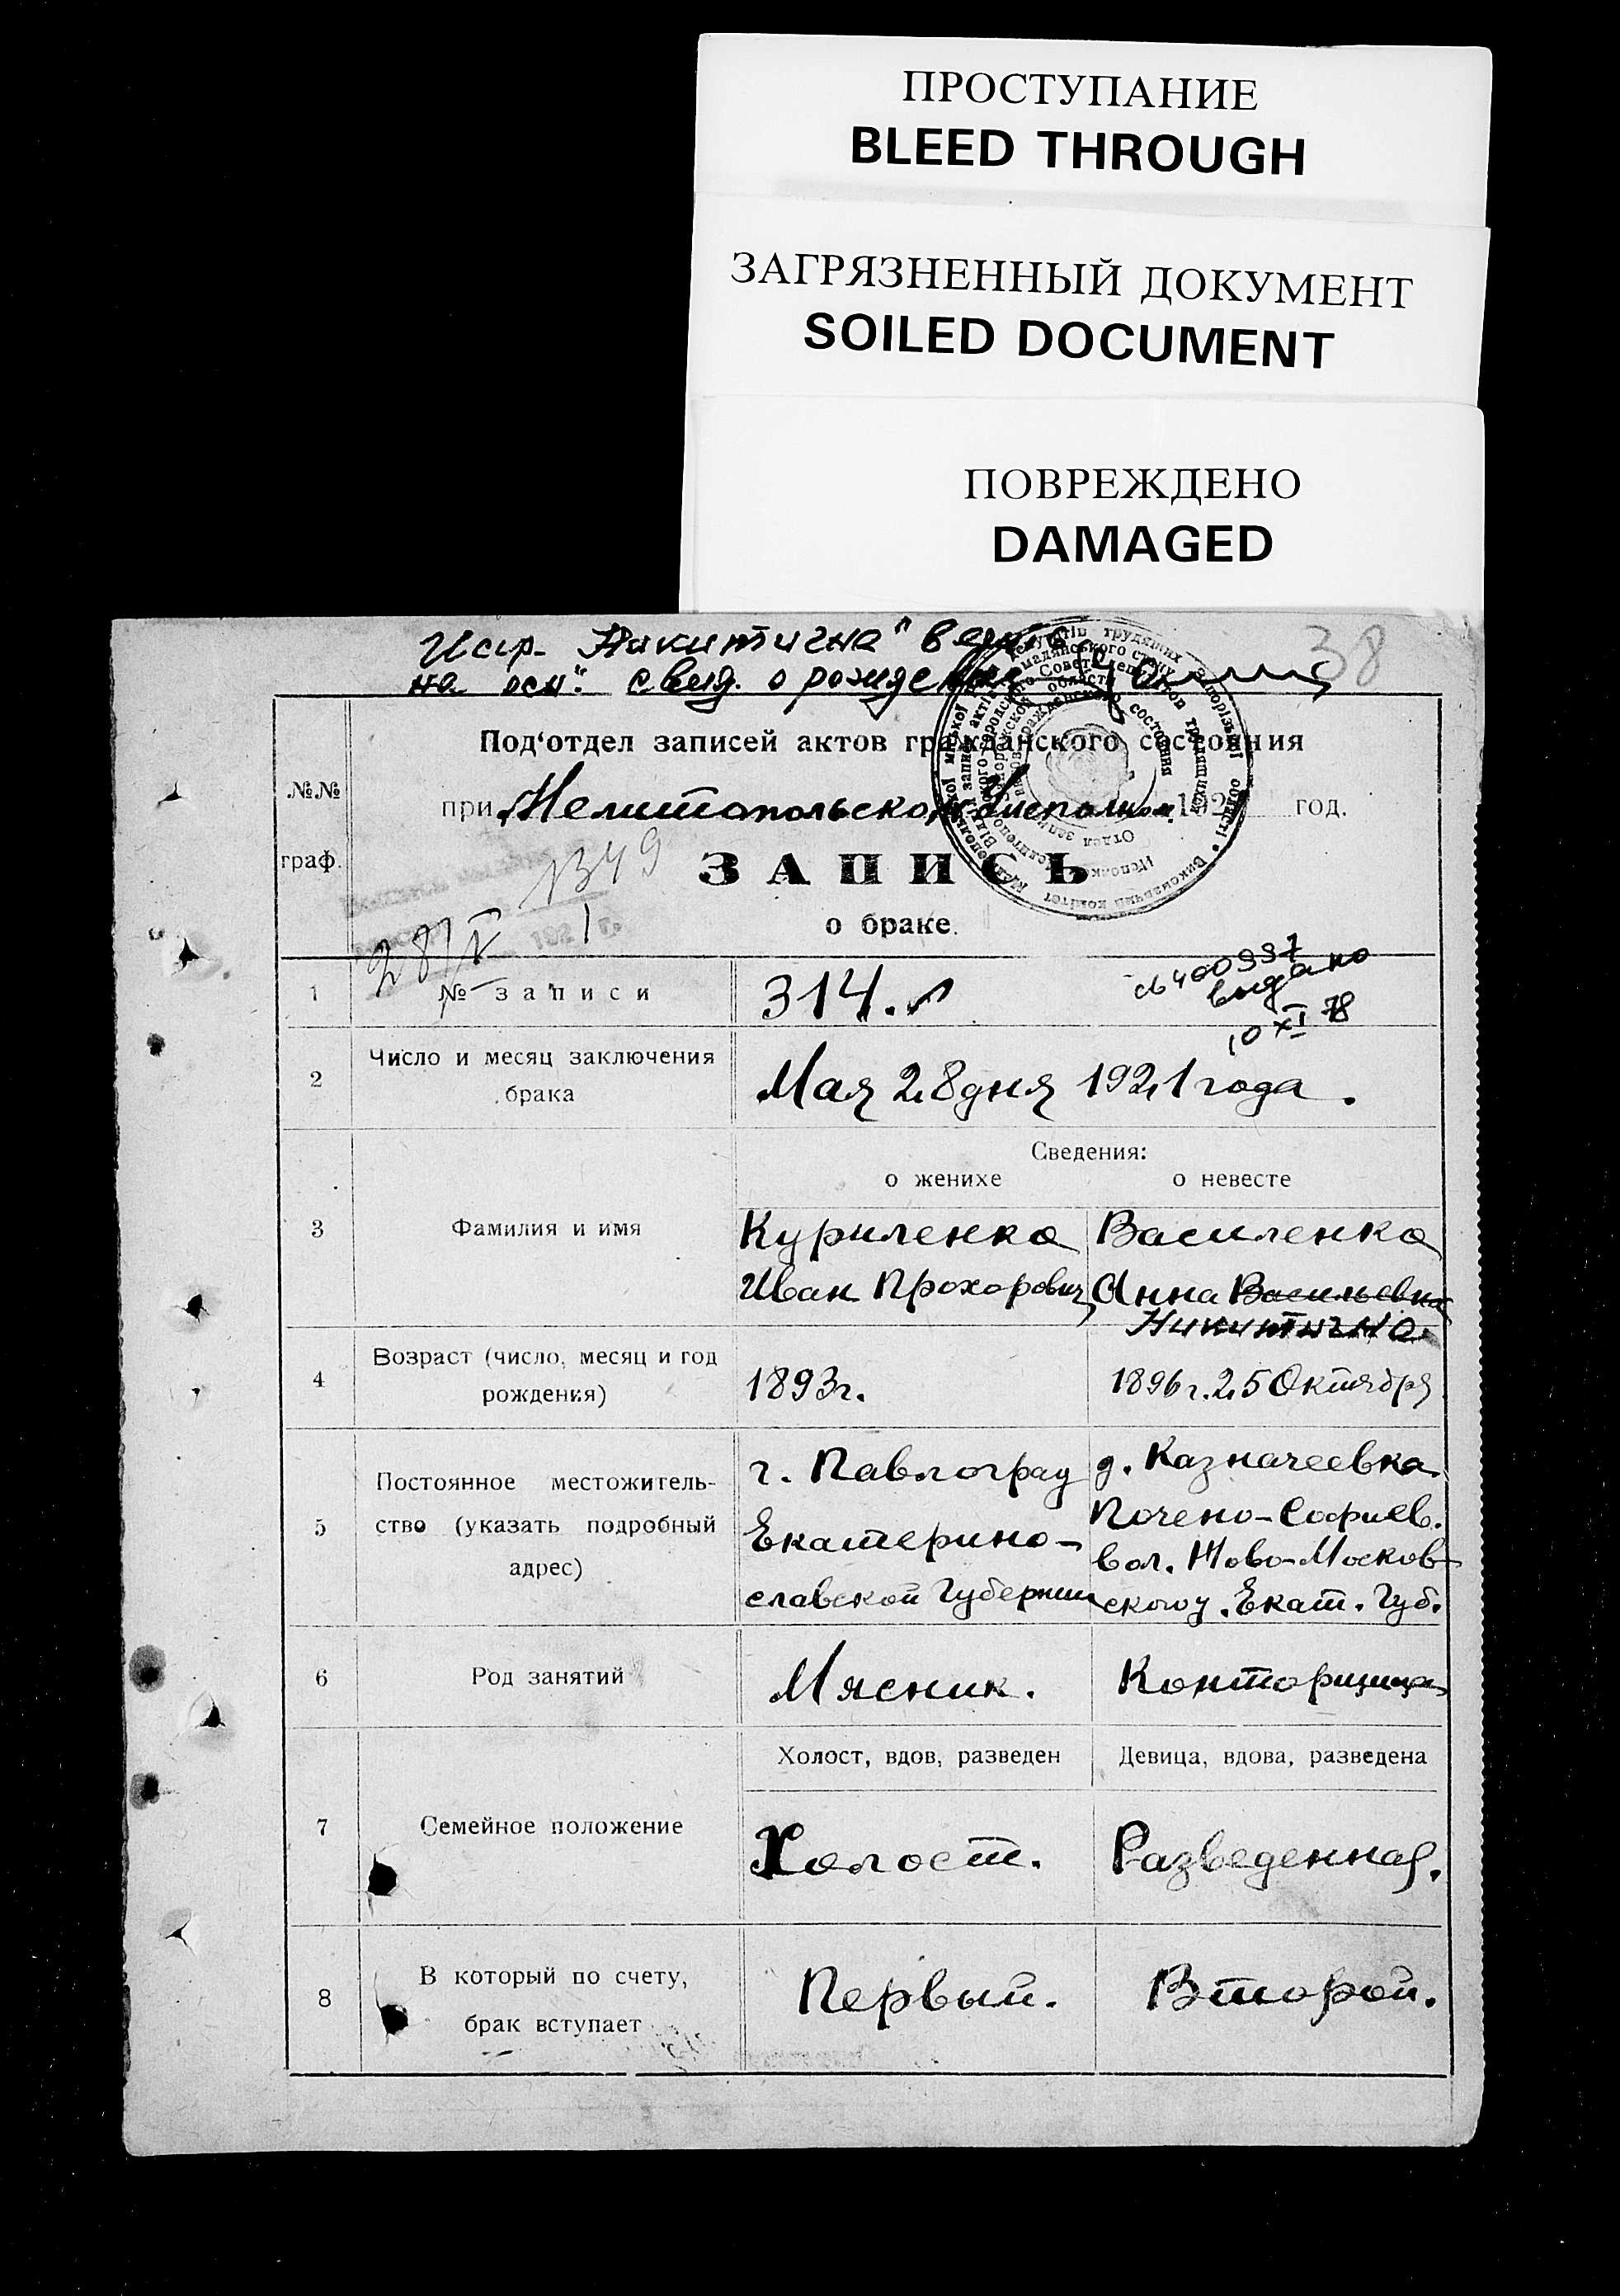 ПРОСТУПАНИЕ
BLEED THROUGH
ЗАГРЯЗНЕННЫЙ ДОКУМЕНТ
SOILED DOCUMENT
ПОВРЕЖДЕНО
DAMAGED
38
Испр. "Никитична"
на осн. свид. о рождении
№№
граф.
Под'отдел записей актов гражданского состояния
при Мелитопольском Исполком 192 год.
№349
28/V 1921 г.
ЗАПИСЬ
о браке.
1
№ записи
314.
сб 400997
выдано
10 XI 78
2
Число и месяц заключения
брака
Мая 28 дня 1921 года.
Сведения:
о женихе
о невесте
3
Фамилия и имя
Куриленко
Иван Прохорович
Василенко
Анна Васильевна
Никитична
4
Возраст (число, месяц и год
рождения)
1893 г.
1896 г. 25 Октября
5
Постоянное местожитель-
ство (указать подробный
адрес)
г. Павлоград
Екатерино-
славской Губернии
д. Казначеевка
Почено-Софиев.
вол. Ново-Москов-
ского у. Екат. Губ.
6
Род занятий
Мясник.
Конторщица
7
Семейное положение
Холост, вдов, разведен
Девица, вдова, разведена
Холост.
Разведенная.
8
В который по счету,
брак вступает
Первый.
Второй.